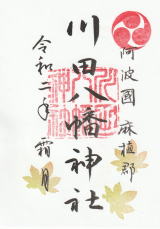 阿波國 麻植郡
川田八幡神社
令和二年 霜月